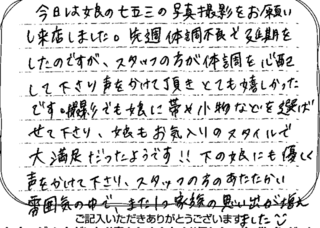 今日は娘の七五三の写真撮影をお願い
し来店しました。先週体調不良で延期を
したのですが、スタッフの方が体調を心配
して下さり声をかけて頂きとても嬉しかった
です。撮影でも娘に帯や小物などを選ば
せて下さり、娘もお気入りのスタイルで
大満足だったようです!!下の娘にも優しく
声をかけて下さり、スタッフの方のあたたかい
雰囲気の中で、また1つ家族の思い出が増え
ご記入いただきありがとうございます
ました